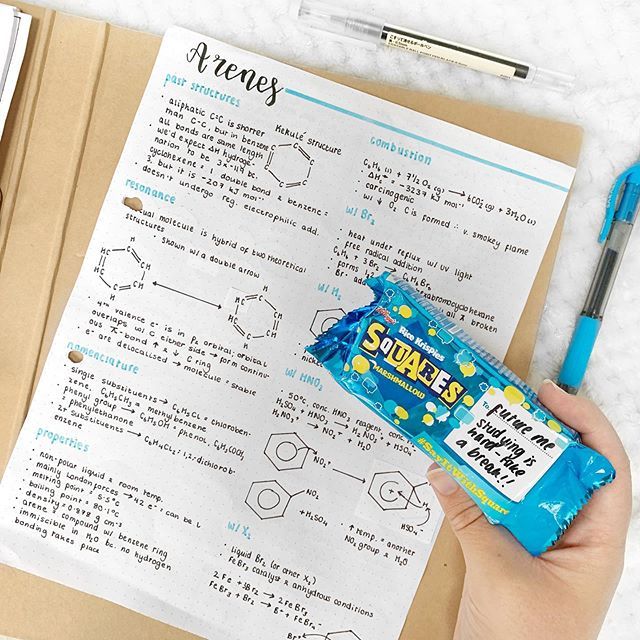 Arenes
past structures
aliphatic C=C is shorter
than C-C, but in benzene
all bonds are same length
we'd expect ΔH hydroge-
nation to be 3x -119 bc.
cyclohexene = 1 double bond & benzene =
3, but it is -207 kJ mol⁻¹
doesn't undergo reg. electrophilic add.
Kekulé structure
resonance
actual molecule is hybrid of two theoretical
structures
shown w/ a double arrow
4th valence e⁻ is in Pz orbital; orbital
overlaps w/ C either side → form continu-
ous π-bond ↑ & ↓ C ring
e⁻ are delocalised → molecule = stable
nomenclature
single substituents → C₆H₅Cl = chloroben-
zene, C₆H₅CH₃ = methyl benzene
phenyl group → C₆H₅OH = phenol, C₆H₅COCH₃
= phenylethanone
2+ substituents → C₆H₄Cl₂ : 1,2-dichlorob-
enzene
properties
non-polar liquid @ room temp.
mainly London forces
melting point = 5.5°C
boiling point = 80.1°C
density = 0.878 g cm⁻³
arene = compound w/ benzene ring
immiscible in H₂O bc. no hydrogen
bonding takes place
combustion
C₆H₆ (l) + 7½ O₂ (g) → 6CO₂ (g) + 3H₂O (l)
ΔH = -3237 kJ mol⁻¹
carcinogenic
w/ ↓ O₂ C is formed ∴ v. smokey flame
w/ Br₂
heat under reflux w/ UV light
free radical addition
C₆H₆ + 3Br₂ → C₆H₆Br₆
forms 1,2
Br- add
abromocyclohexane
all
broken
w/ H₂
nickel
w/ HNO₃
50°C, conc. HNO₃ reagent, conc.
H₂SO₄ + HNO₃ → H₂NO₃⁺ + HSO₄⁻
H₂NO₃⁺ → NO₂⁺ + H₂O
NO₂⁺
NO₂
+ H₂SO₄
HSO₄⁻
↑ temp. = another
NO₂ group & H₂O
w/ X₂
liquid Br₂ (or other X₂)
FeBr₃ catalyst & anhydrous conditions
2Fe + 3Br₂ → 2FeBr₃
FeBr₃ + Br₂ → Br⁺ + FeBr₄⁻
Br⁺
Kellogg's
Rice Krispies
SQUARES
MARSHMALLOW
To:
future me
studying is
hard - take
a break!!
#SayItWithSquares